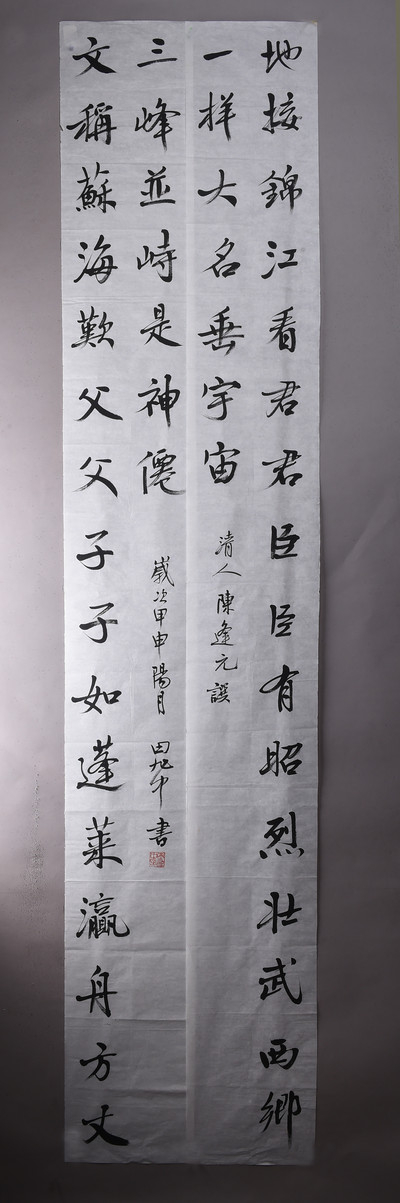 地接錦江看君君臣臣有昭烈壯武西鄉
一样大名垂宇宙
清人陳逢元譔
文稱蘇海歎父父子子如蓬萊瀛舟方丈
三峰並峙是神僊
歲次甲申陽月 田旭中書